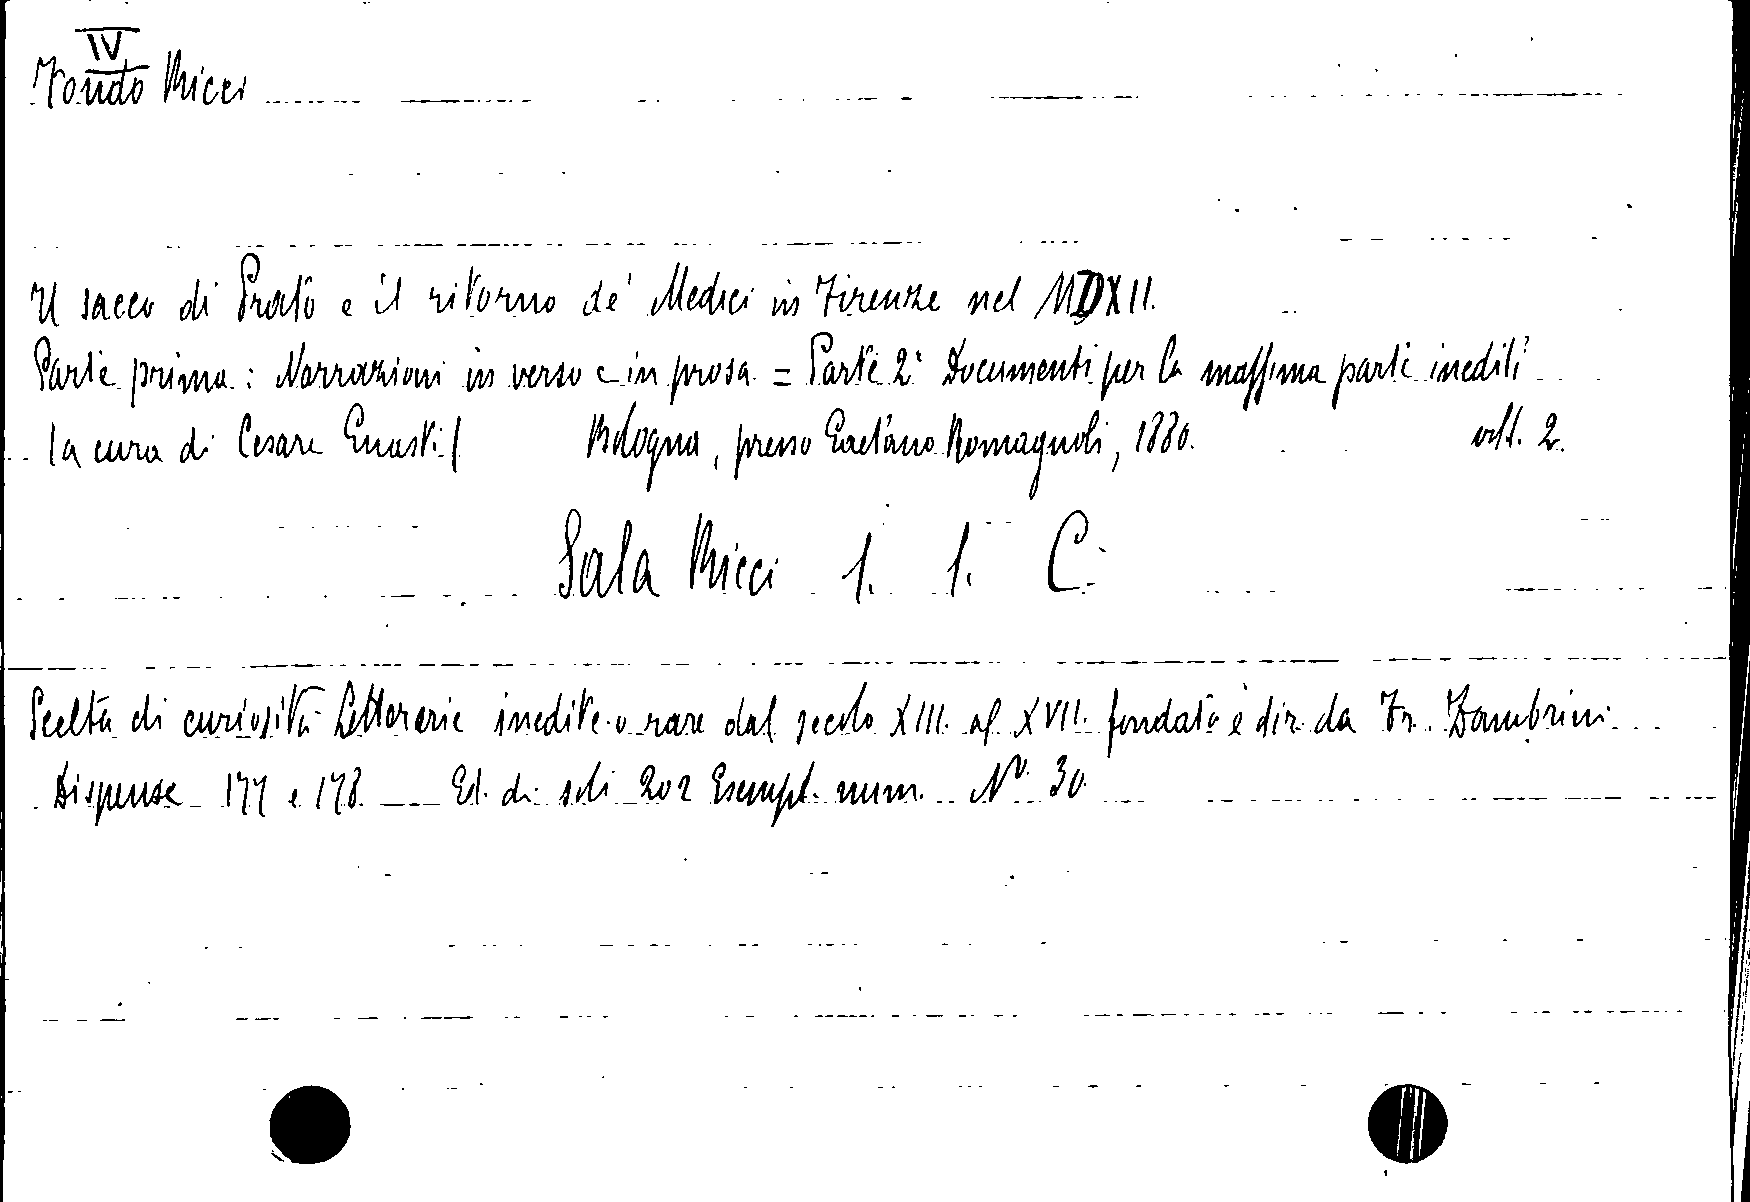 IV
Fondo Ricci
Il sacco di Prato e il ritorno de' Medici in Firenze nel MDXII.
Parte prima: Narrazioni in verso e in prosa = Parte 2ª Documenti per la massima parte inediti
(a cura di Cesare Guasti( Bologna, presso Gaetano Romagnoli, 1880. voll. 2.
Sala Ricci 1. 1. C.
Scelta di curiosità letterarie inedite o rare dal secolo XIII. al XVII. fondata e dir. da Fr. Zambrini
Dispense 177 e 178. Ed. di soli 202 Esempl. num. Nº 30.